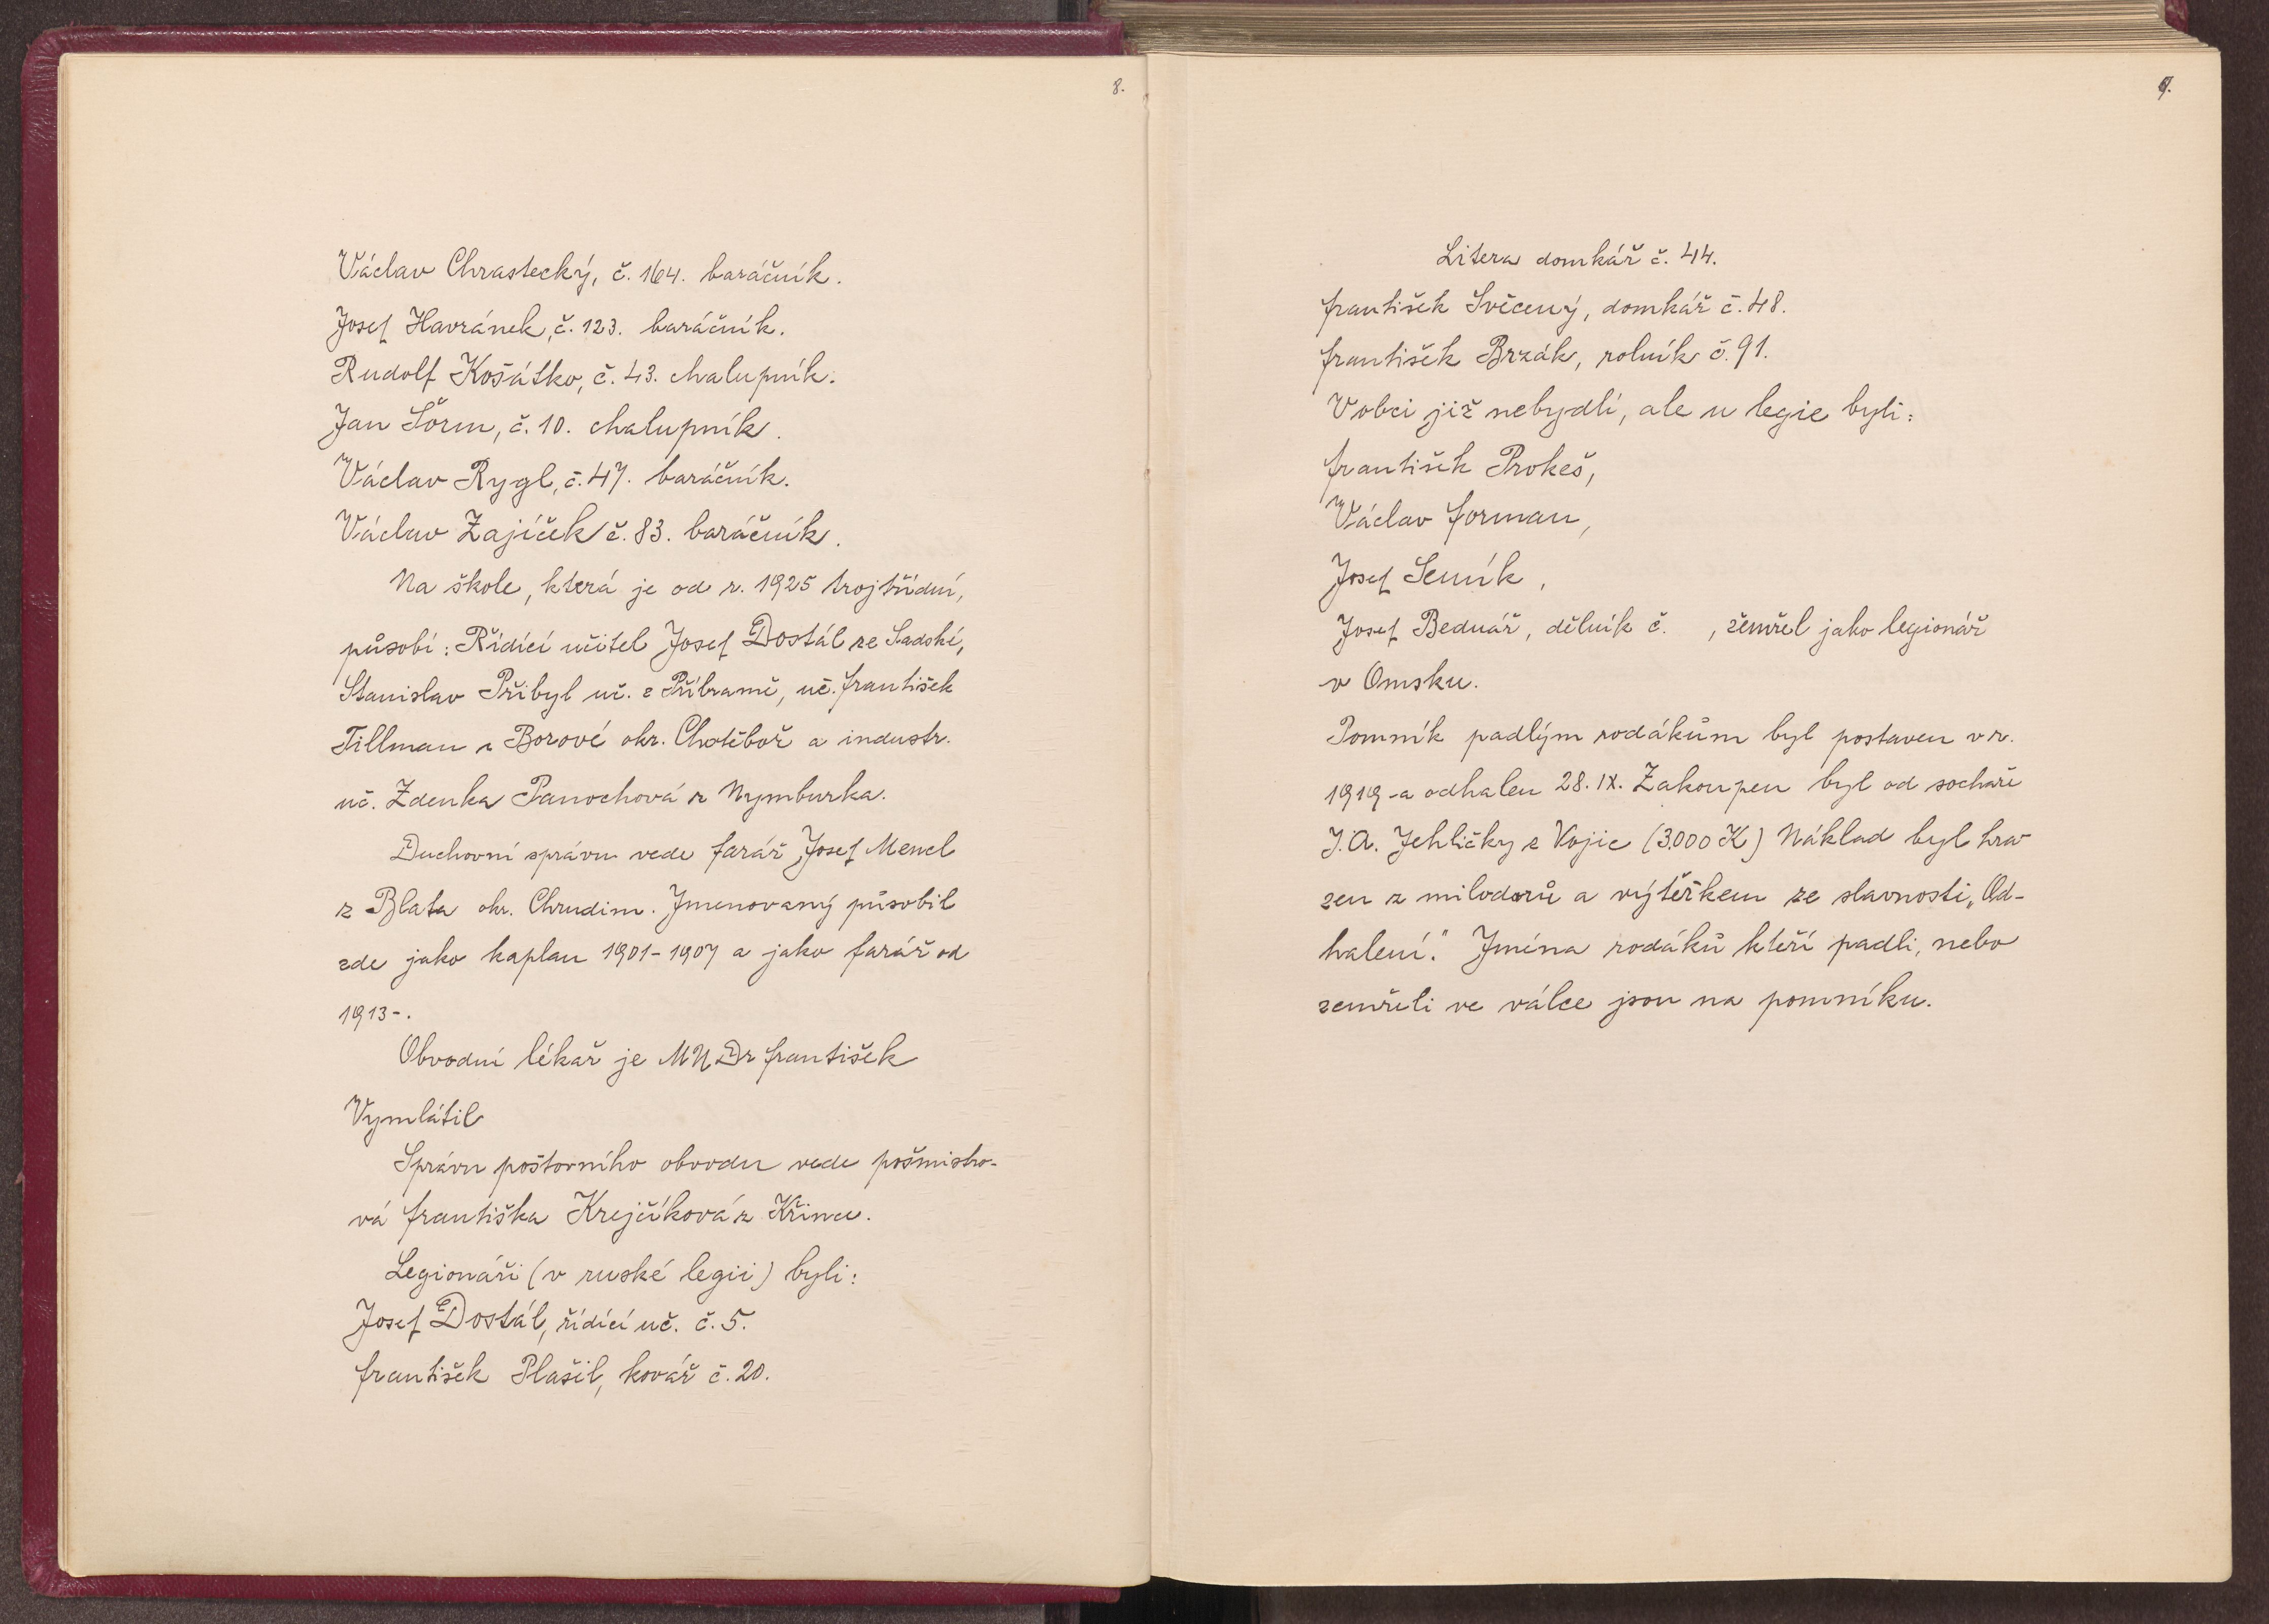 8.
Václav Chrastecký, č. 164. baráčník.
Josef Havránek, č. 123. baráčník.
Rudolf Košátko, č. 43. chalupník.
Jan Šörm, č. 10. chalupník.
Václav Rygl, č. 47. baráčník.
Václav Zajíček č. 83. baráčník.
Na škole, která je od r. 1925 trojtřídní,
působí: Řídící učitel Josef Dostál ze Sadské,
Stanislav Přibyl uč. z Příbramě, uč. František
Tillman z Borové okr. Chotěboř a industr.
uč. Zdenka Panochová z Nymburka.
Duchovní správu vede farář Josef Mencl
z Blata okr. Chrudim. Jmenovaný působil
zde jako kaplan 1901-1907 a jako farář od
1913-.
Obvodní lékař je MUDr František
Vymlátil
Správu poštovního obvodu vede pošmistro-
vá Františka Krejčíková z Křince.
Legionáři (v ruské legii) byli:
Josef Dostál, řídící uč. č. 5.
František Plašil, kovář č. 20.
9.
Litera domkář č. 44.
František Svěcený, domkář č. 48.
František Brzák, rolník č. 91.
V obci již nebydlí, ale u legie byli:
František Prokeš,
Václav Forman,
Josef Semík,
Josef Bednář, dělník č. , zemřel jako legionář
v Omsku.
Pomník padlým rodákům byl postaven v r.
1919 a odhalen 28. IX. Zakoupen byl od sochaře
J. A. Jehličky z Vojic (3.000 K) Náklad byl hra
zen z milodarů a výtěžkem ze slavnosti „Od-
halení." Jména rodáků kteří padli, nebo
zemřeli ve válce jsou na pomníku.